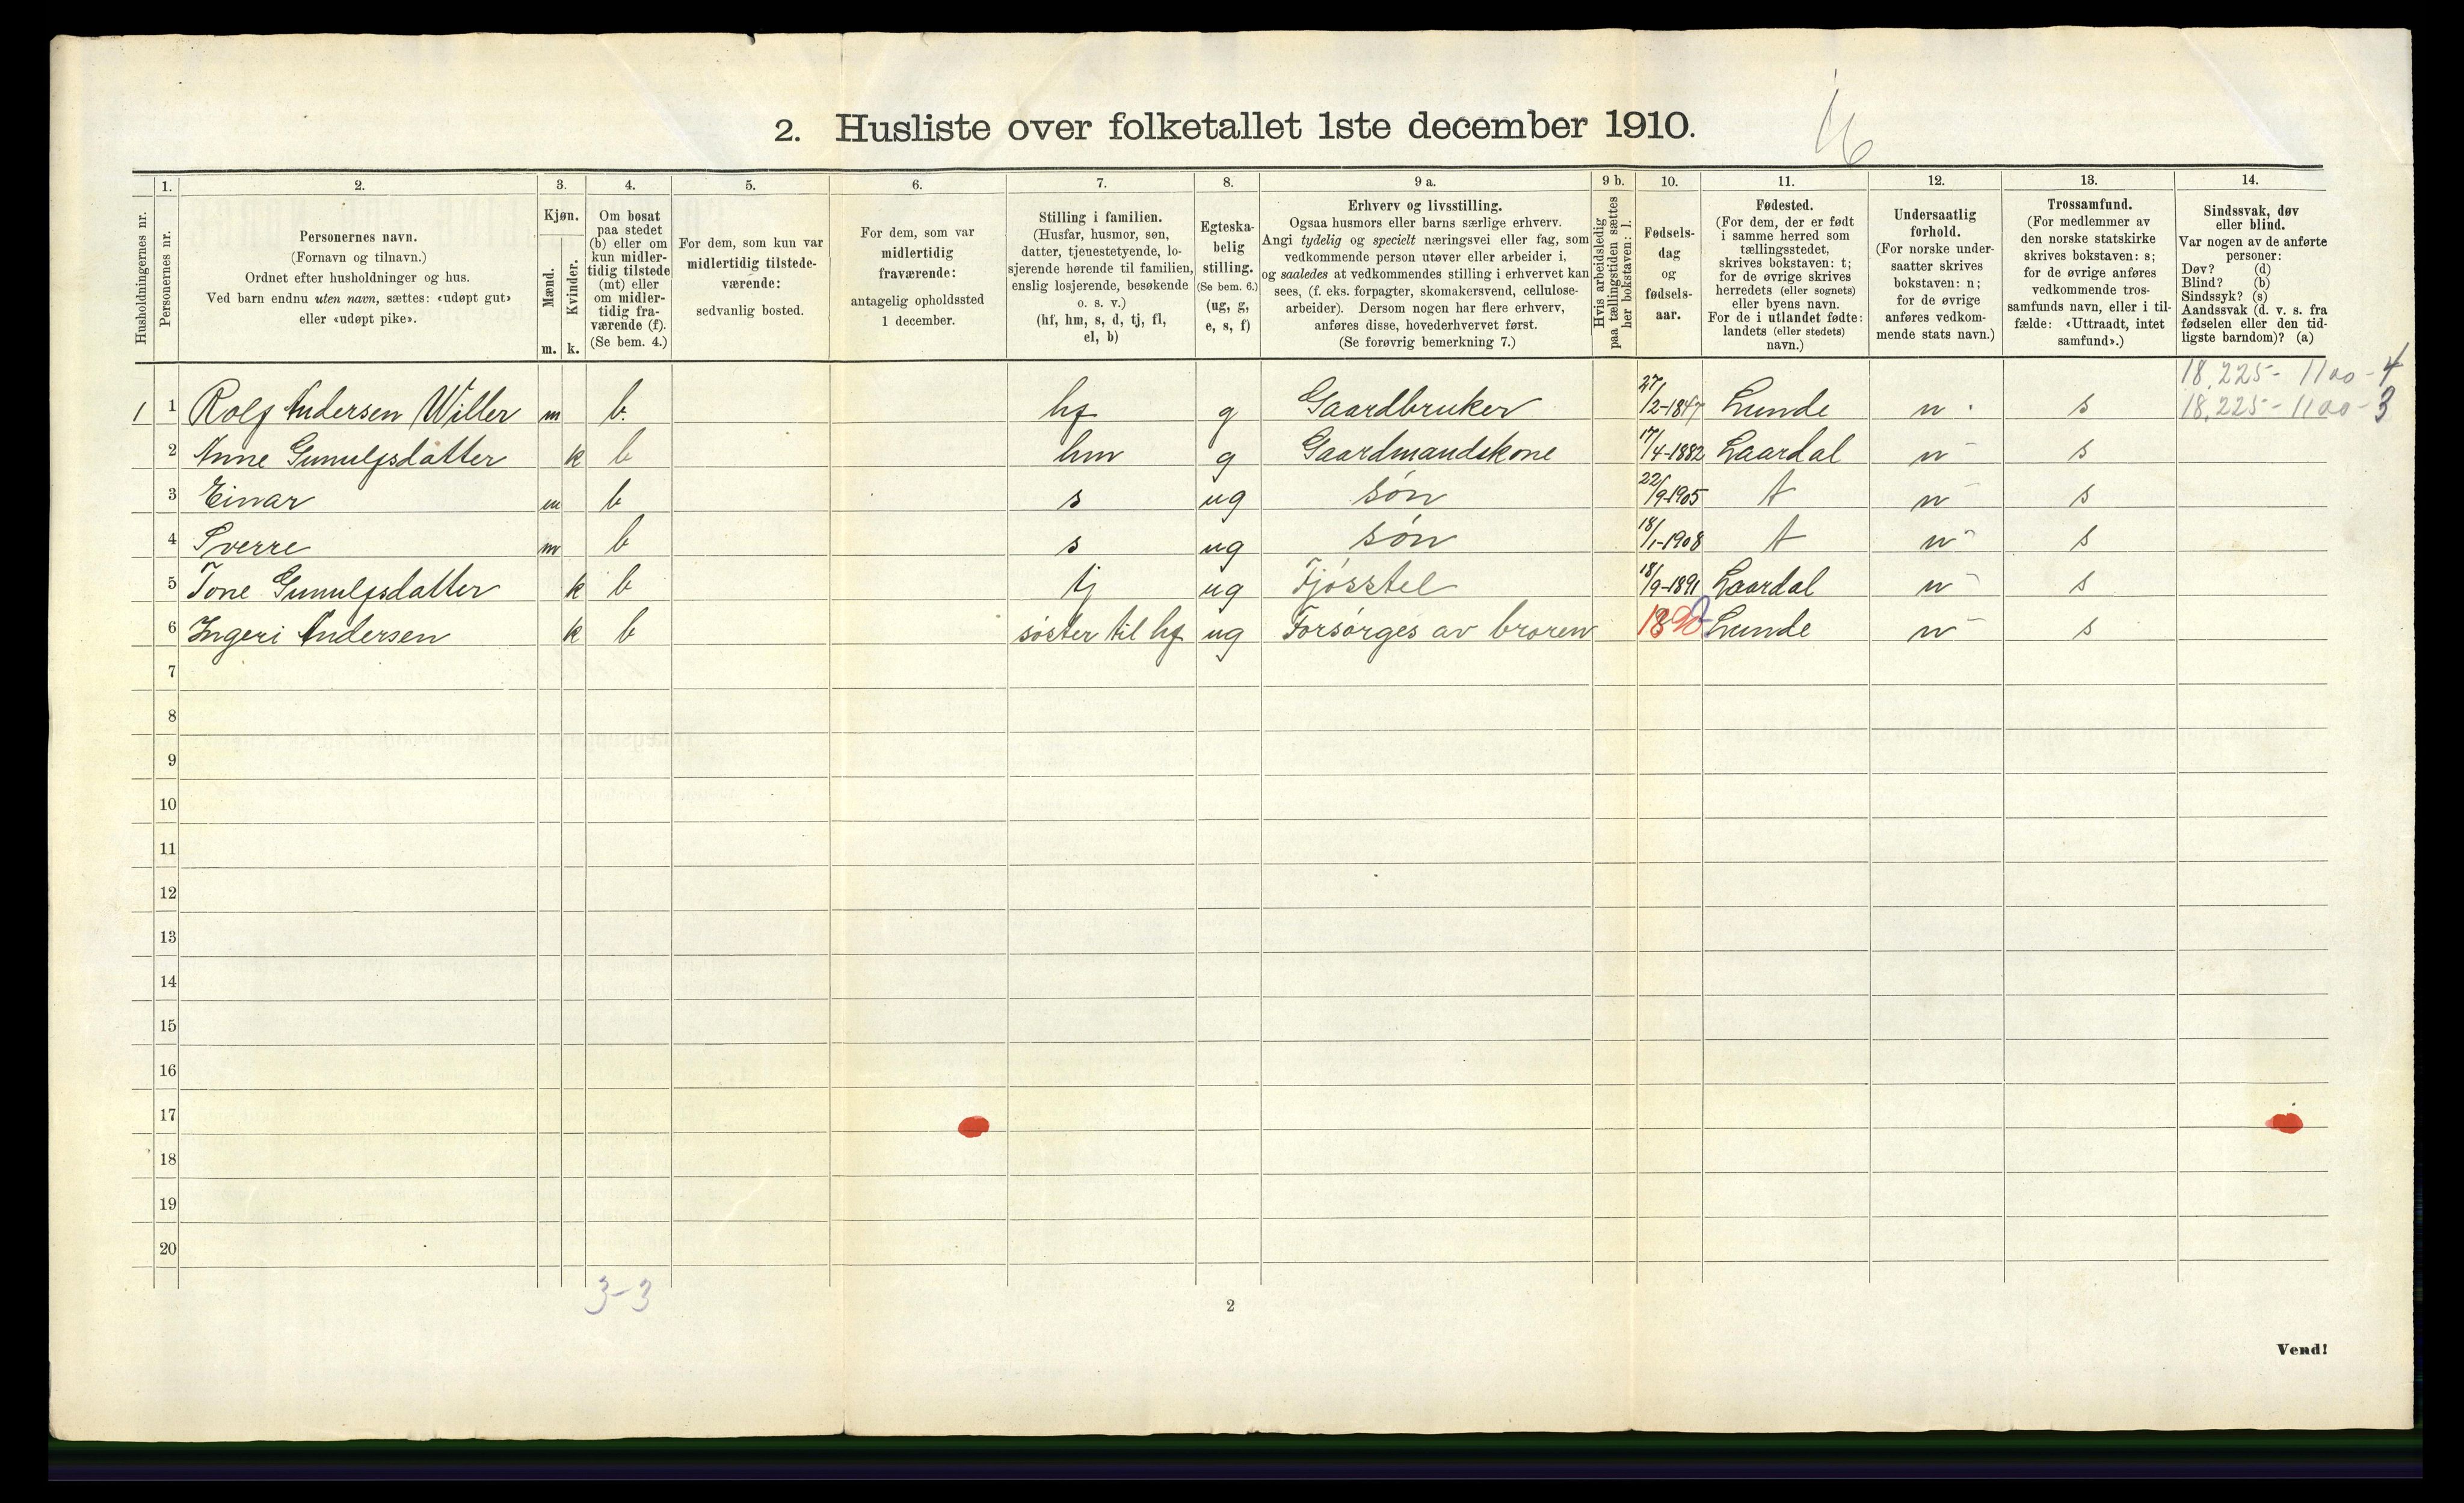 2. Husliste over folketallet 1ste december 1910.
16
1. 2. 3. 4. 5. 6. 7. 8. 9 a. 9 b. 10. 11. 12. 13. 14.
Husholdningernes nr.
Personernes nr.
Personernes navn.
(Fornavn og tilnavn.)
Ordnet efter husholdninger og hus.
Ved barn endnu uten navn, sættes: «udøpt gut»
eller «udøpt pike».
Kjøn.
Mænd.
Kvinder.
m. k.
Om bosat
paa stedet
(b) eller om
kun midler-
tidig tilstede
(mt) eller
om midler-
tidig fra-
værende (f).
(Se bem. 4.)
For dem, som kun var
midlertidig tilstede-
værende:
sedvanlig bosted.
For dem, som var
midlertidig
fraværende:
antagelig opholdssted
1 december.
Stilling i familien.
(Husfar, husmor, søn,
datter, tjenestetyende, lo-
sjerende hørende til familien,
enslig losjerende, besøkende
o. s. v.)
(hf, hm, s, d, tj, fl,
el, b)
Egteska-
belig
stilling.
(Se bem. 6.)
(ug, g,
e, s, f)
Erhverv og livsstilling.
Ogsaa husmors eller barns særlige erhverv.
Angi tydelig og specielt næringsvei eller fag, som
vedkommende person utøver eller arbeider i,
og saaledes at vedkommendes stilling i erhvervet kan
sees, (f. eks. forpagter, skomakersvend, cellulose-
arbeider). Dersom nogen har flere erhverv,
anføres disse, hovederhvervet først.
(Se forøvrig bemerkning 7.)
Hvis arbeidsledig
paa tællingstiden sættes
her bokstaven: l.
Fødsels-
dag
og
fødsels-
aar.
Fødested.
(For dem, der er født
i samme herred som
tællingsstedet,
skrives bokstaven: t;
for de øvrige skrives
herredets (eller sognets)
eller byens navn.
For de i utlandet fødte:
landets (eller stedets)
navn.)
Undersaatlig
forhold.
(For norske under-
saatter skrives
bokstaven: n;
for de øvrige
anføres vedkom-
mende stats navn.)
Trossamfund.
(For medlemmer av
den norske statskirke
skrives bokstaven: s;
for de øvrige anføres
vedkommende tros-
samfunds navn, eller i til-
fælde: «Uttraadt, intet
samfund».)
Sindssvak, døv
eller blind.
Var nogen av de anførte
personer:
Døv? (d)
Blind? (b)
Sindssyk? (s)
Aandssvak (d. v. s. fra
fødselen eller den tid-
ligste barndom)? (a)
18,225- 1100-4
1 1 Rolf Andersen Willer m b. hf g Gaardbruker 27/2-1847 Lunde n s 18,225-1100-3
2 Anne Gunulfsdatter k b hm g Gaardmandskone 17/4-1882 Laardal n s
3 Einar m b s ug søn 22/9-1905 t n s
4 Sverre m b s ug søn 18/1-1908 t n s
5 Tone Gunulfsdatter k b tj ug Fjøsstel 18/9-1891 Laardal n s
6 Ingeri Andersen k b søster til hf ug Forsørges av broren Lunde n s
7
8
9
10
11
12
13
14
15
16
17
18
19
20
3-3
2
Vend!